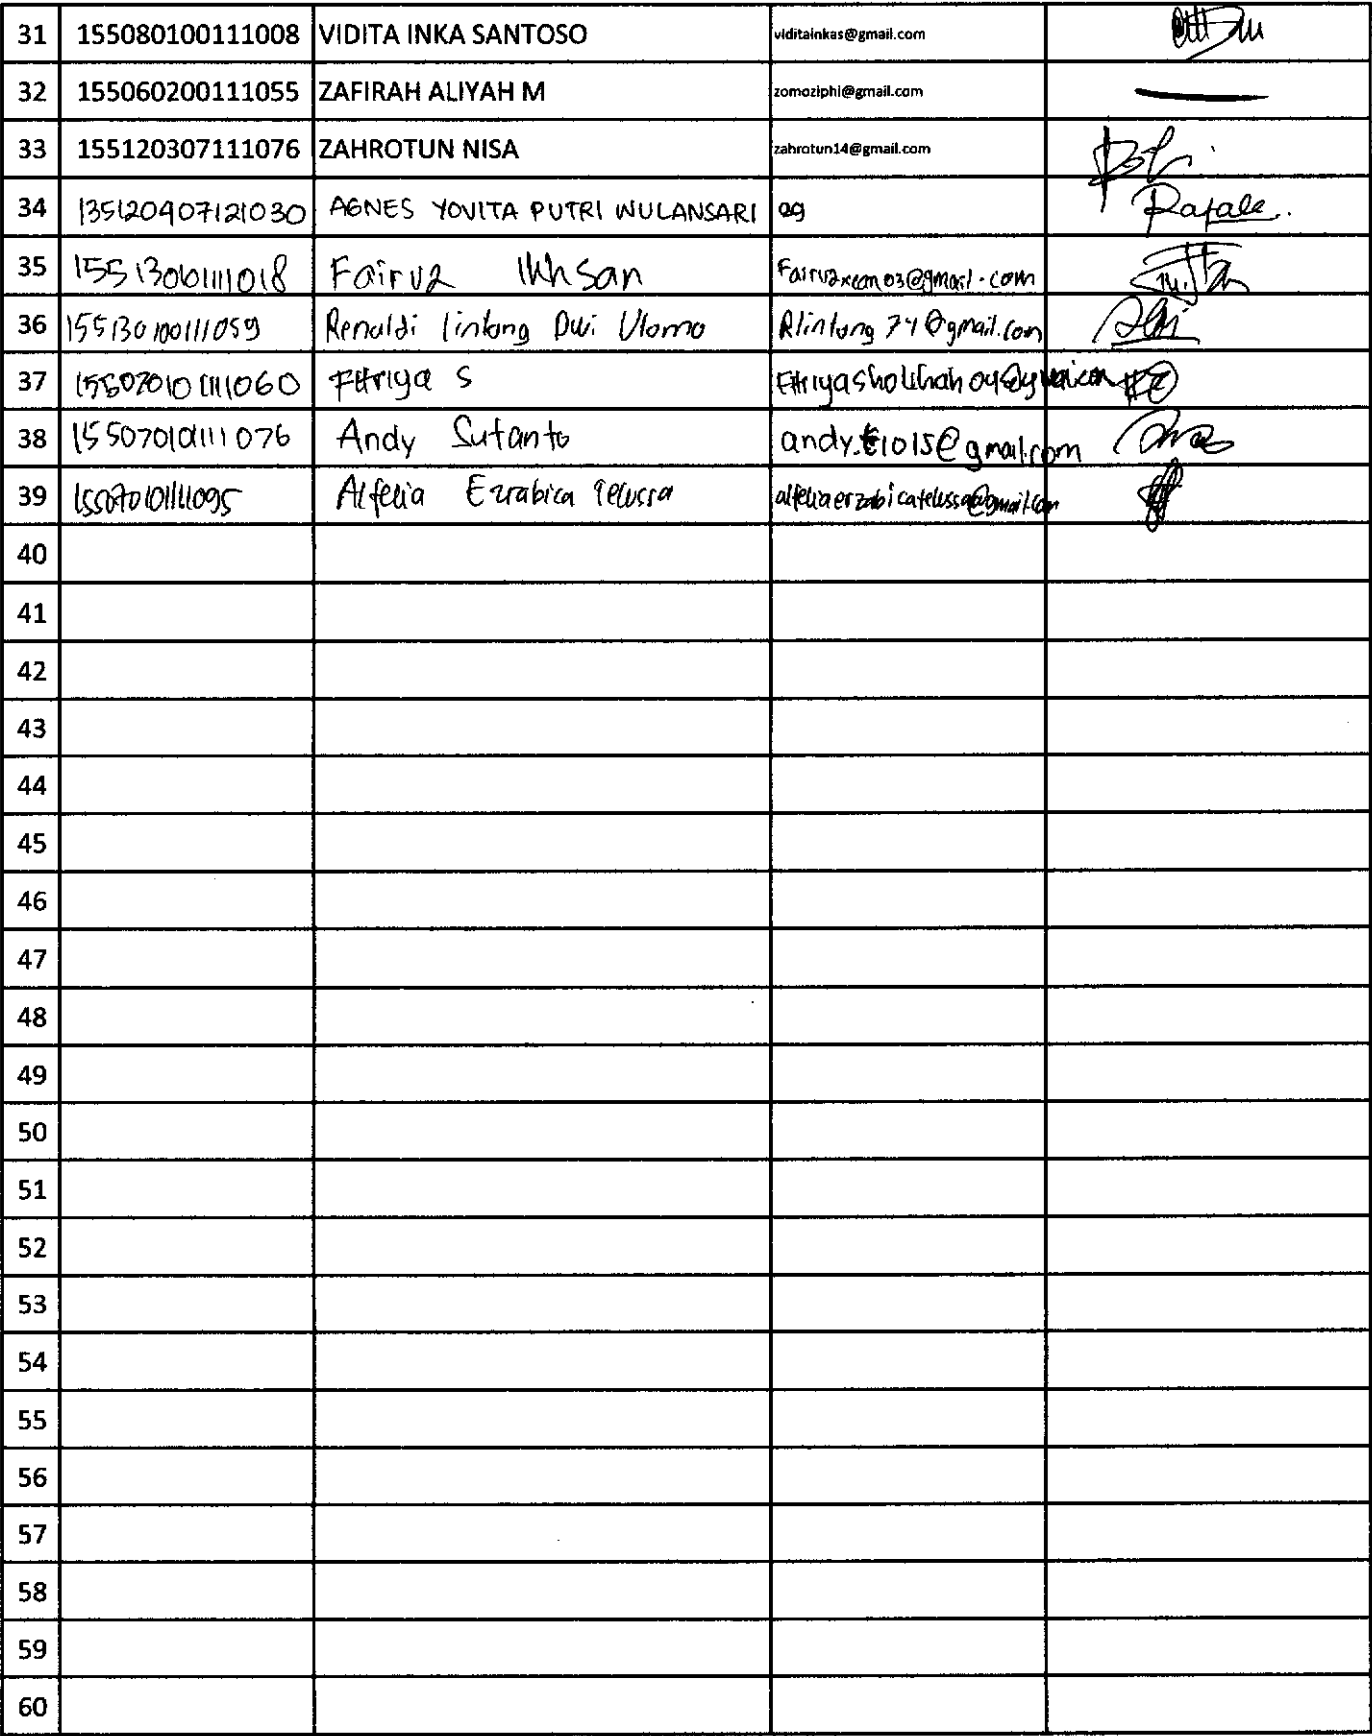 31 155080100111008 VIDITA INKA SANTOSO viditainkas@gmail.com
32 155060200111055 ZAFIRAH ALIYAH M zomoziphi@gmail.com
33 155120307111076 ZAHROTUN NISA zahrotun14@gmail.com
34 135120907121030 AGNES YOVITA PUTRI WULANSARI ag
35 155130601111018 Fairuz Ikhsan
36 155130100111059 Renaldi lintang Dwi Utomo Rlintang74@gmail.com
37 155070101111060 Fitriya S
38 155070101111076 Andy Sutanto
39 155070101111095 Alfelia Erzabica Telussa alfeliaerzabicatelussa@gmail.com
40
41
42
43
44
45
46
47
48
49
50
51
52
53
54
55
56
57
58
59
60